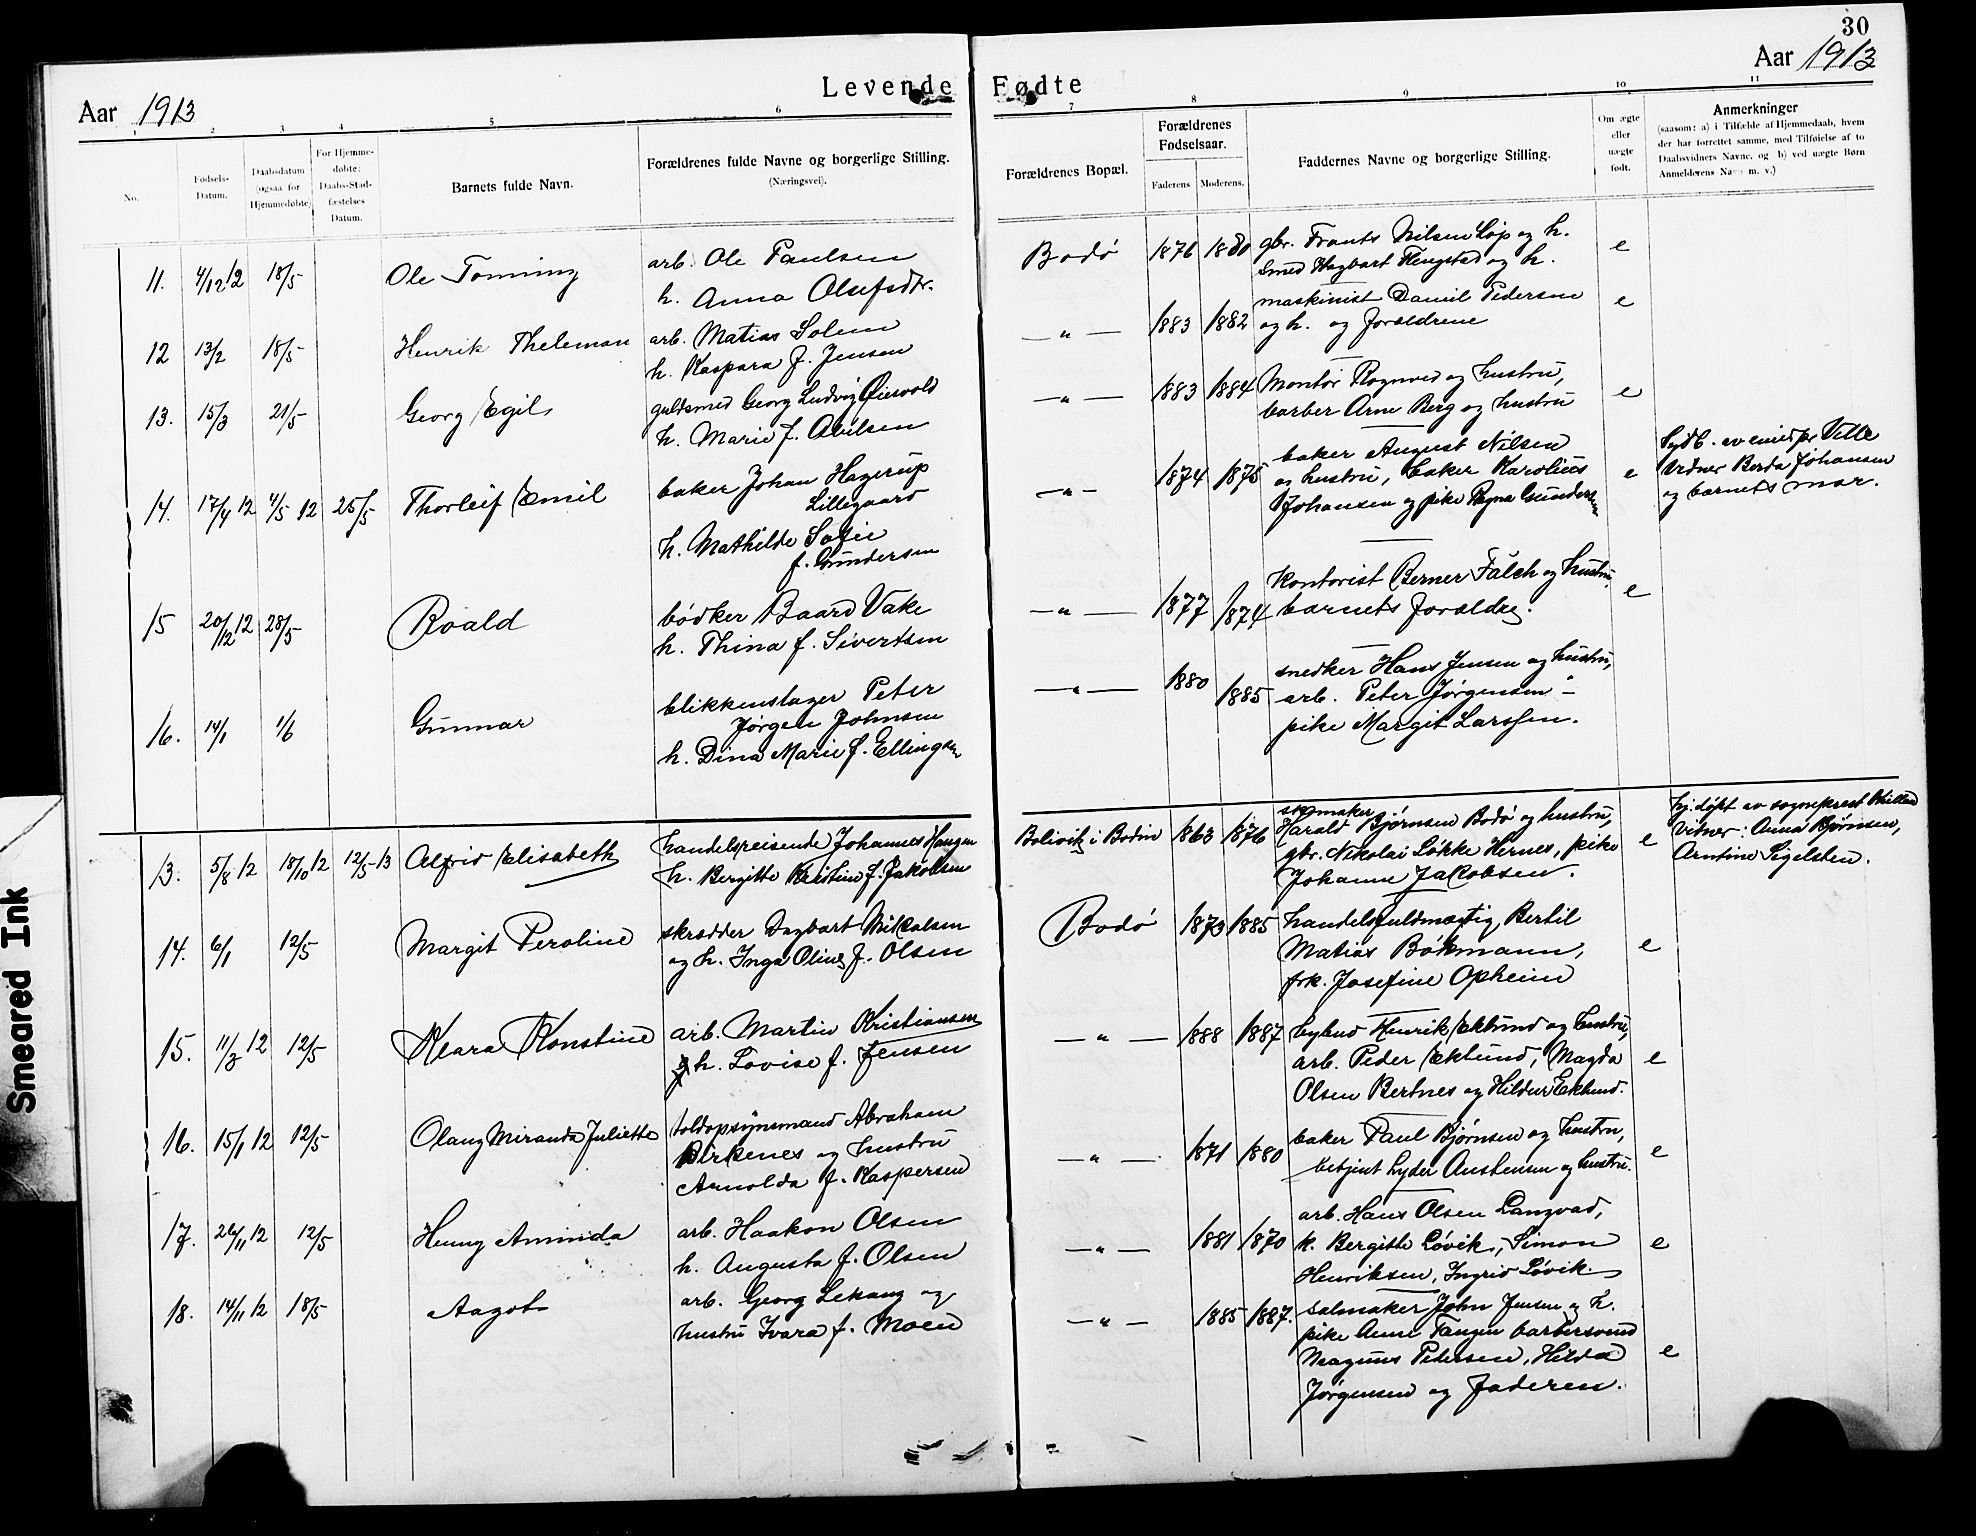 30
Levende Fødte
Aar 1913
Aar 1913
1 2 3 4 5 6 7 8 9 10 11
No.
Fødsels-Datum.
Daabsdatum (ogsaa for Hjemmedøbte)
For Hjemmedøbte: Daabs-Stadfæstelses Datum.
Barnets fulde Navn.
Forældrenes fulde Navne og borgerlige Stilling.
(Næringsvei).
Forældrenes Bopæl.
Forældrenes Fødselsaar.
Faderens Moderens.
Faddernes Navne og borgerlige Stilling.
Om ægte eller uægte født.
Anmerkninger
(saasom: a) i Tilfælde af Hjemmedaab, hvem
der har forrettet samme, med Tilføielse af to
Daabsvidners Navne, og b) ved uægte Børn
Anmelderens Navn m. v.)
11. 4/12 12 18/5 Ole Tonning
arb. Ole Paulsen
h. Anna Olufsdtr.
Bodø 1876 1880
gbr. Frants Nilsen Løp og h.
smed Hagbart Flengstad og h.
e
12 13/2 18/5 Henrik Theleman
arb. Matias Solem
h. Kaspara f. Jensen
— " — 1883 1882
maskinist Daniel Pedersen
og h. og forældrene
e
13. 15/3 21/5 Georg Egil
guldsmed Georg Ludvig Øievold
h. Marie f. Abilsen
— " — 1883 1884
Montør Rognved og hustru,
barber Arne Berg og hustru
e
14. 17/4 12 4/5 12 25/5 Thorleif Emil
baker Johan Hagerup
Lillegaard
h. Mathilde Sofie
f. Gundersen
— " — 1874 1875
baker August Nilsen
og hustru, baker Karolius
Johansen og pike Ragna Gundersen
e
av
vidner Berda Johansen
og barnets mor.
15 20/12 12 28/5 Roald
bødker Baard Vake
h. Thina f. Sivertsen
— " — 1877 1874
Kontorist Berner Falch og hustru,
barnets forældre.
e
16. 14/1 1/6 Gunnar
blikkenslager Peter
Jørgen Johnsen
h. Dina Marie f. Ellingsen
— " — 1880 1885
snedker Hans Jensen og hustru,
arb. Peter Jørgensen " —
pike Margit Larssen.
13. 5/8 12 18/10 12 12/5-13 Alfrid Elisabeth
handelsreisende Johannes Haugen
h. Bergitte Kristine f. Jakobsen
Bolivik i Bodin 1863 1876
skomaker
Harald Bjørnsen Bodø og hustru,
gbr. Nikolai Løkke Hernes, pike
Johanne Jakobsen.
e
hj. døpt av sogneprest
Vidner: Anna Bjørnsen,
Arntine Sigelsten.
14. 6/1 12/5 Margit Peroline
skrædder Dagbart Mikalsen
og h. Inga Oline f. Olsen
Bodø 1873 1885
handelsfuldmægtig Bertil
Matias Bökmann,
frk. Josefine Opheim
e
15. 11/3 12 12/5 Klara Konstine
arb. Martin Kristiansen
h. Lovise f. Jensen
— " — 1888 1887
bybud Henrik Eklund og hustru,
arb. Peder Eklund, Magda
Olsen Bertnes og Hildur Eklund.
e
16. 15/1 12 12/5 Olaug Miranda Juliette
toldopsynsmand Abraham
Birkenes og hustru
Arnolda f. Kaspersen
— " — 1871 1880
baker Paul Bjørnsen og hustru,
betjent Lyder Anstensen og hustru.
e
17. 26/11 12 12/5 Henny Aminda
arb. Haakon Olsen
h. Augusta f. Olsen
— " — 1881 1870
arb. Hans Olsen Langvad,
k. Bergitte Løvik, Simon
Henriksen, Ingrid Løvik.
e
18. 14/11 12 18/5 Aagot
arb. Georg Lekang og
hustru Ivara f. Moen
— " — 1885 1887.
salmaker John Jensen og h.
pike Anne Tangen barbersvend
Magnus Pedersen, Hilda
Jørgensen og faderen.
e
Smeared Ink